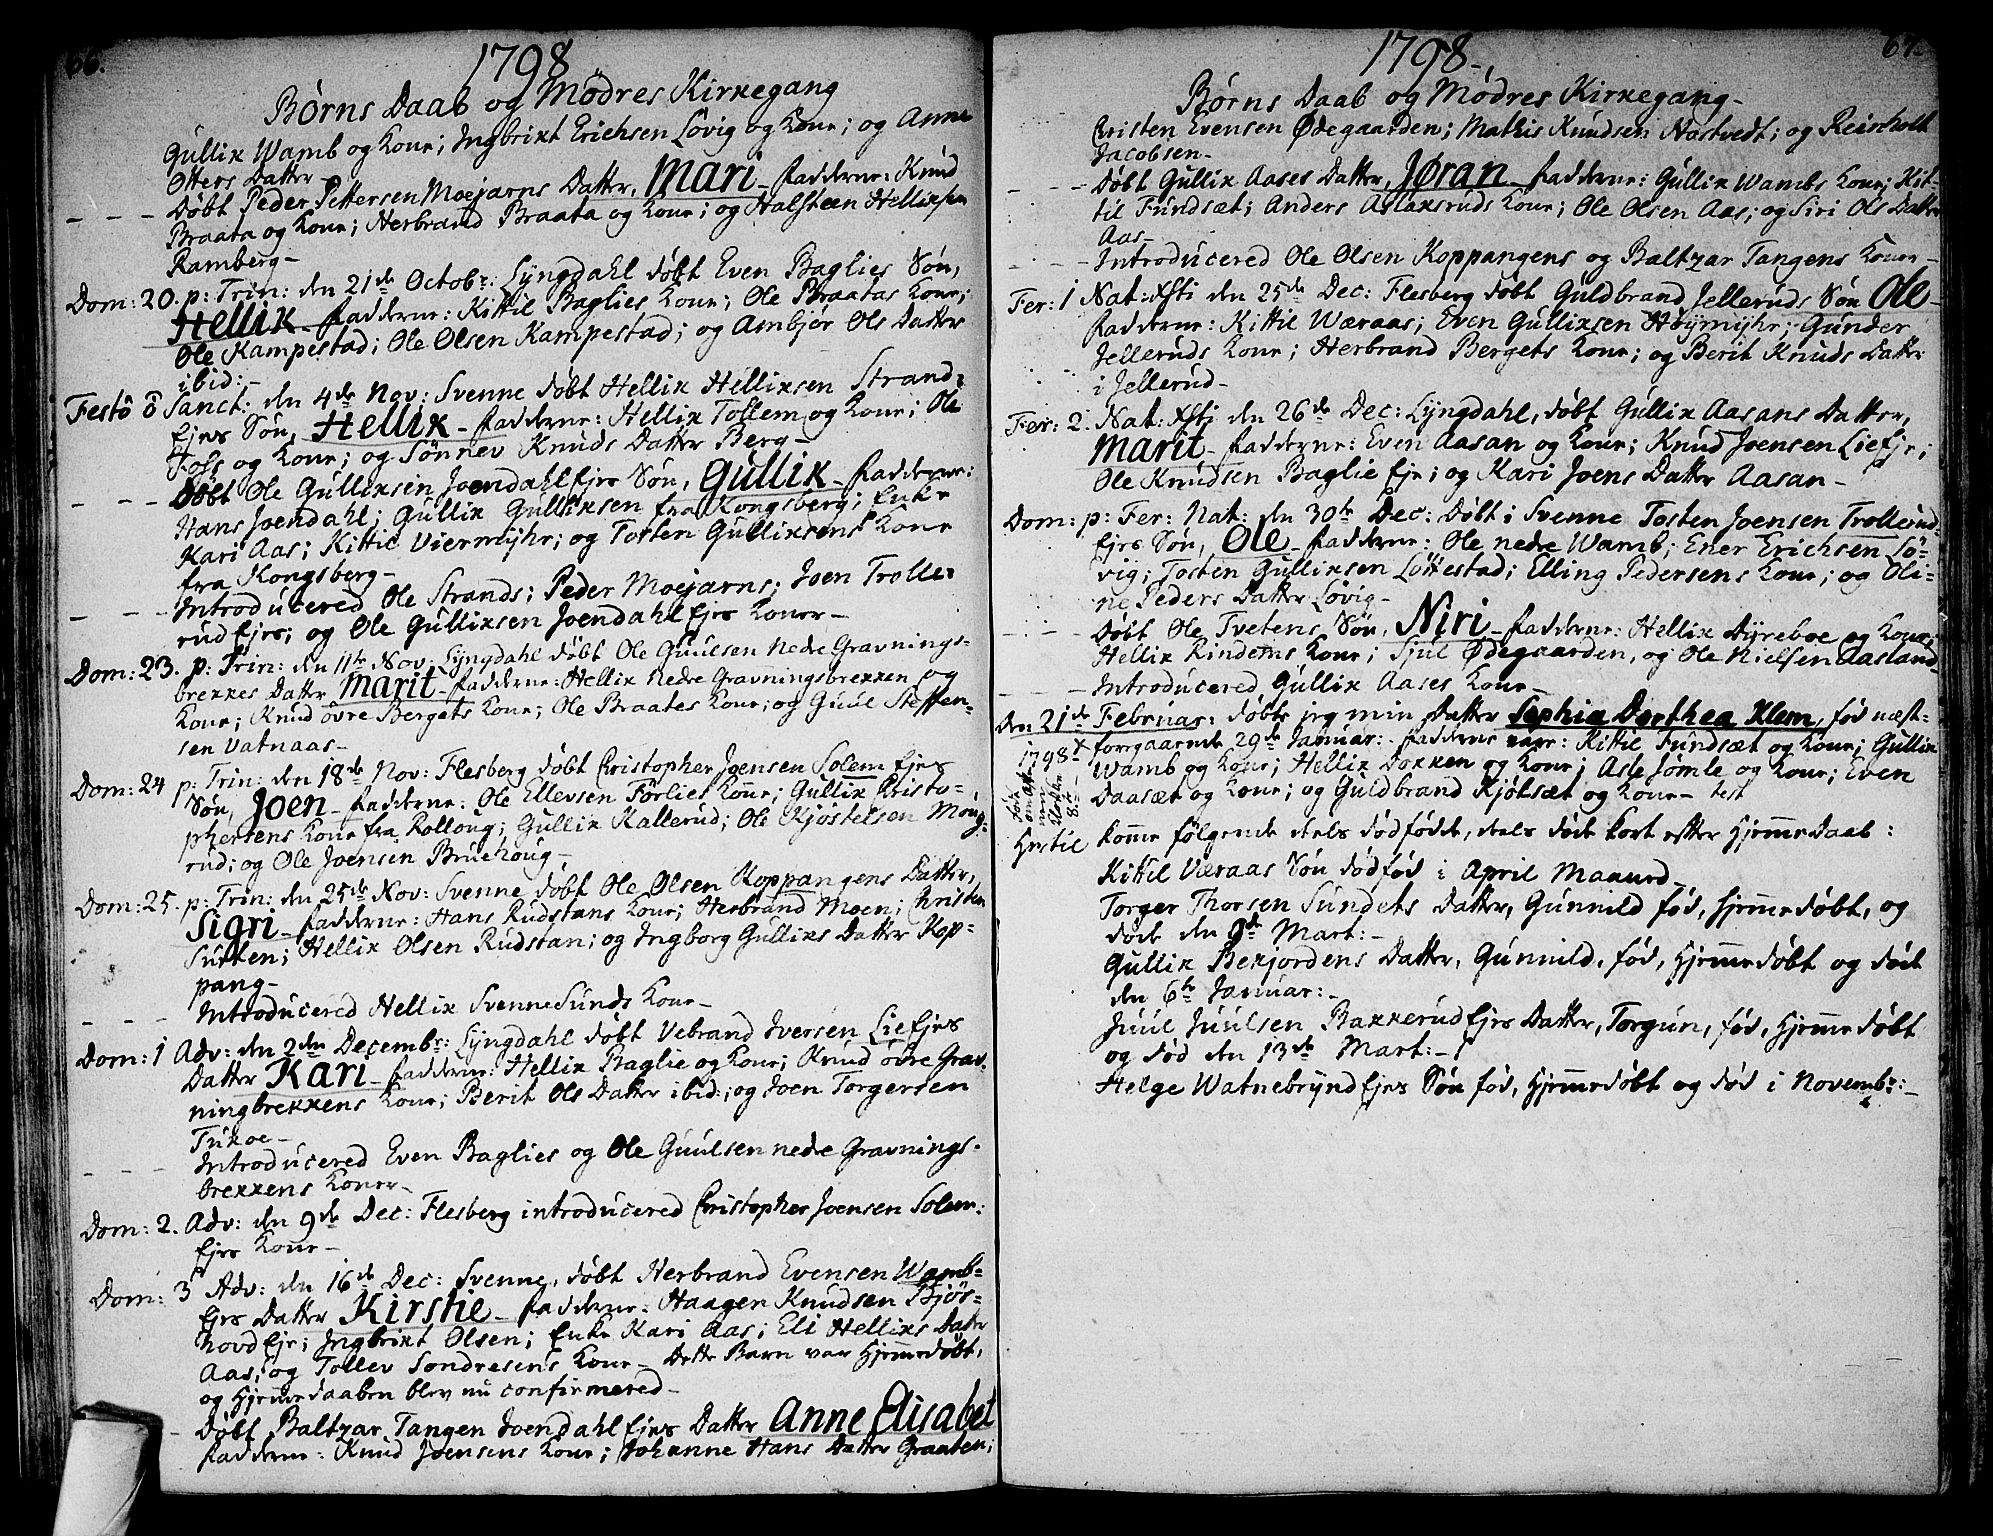 66.
1798
Børns Daab og Mødres Kirkegang
Gullix Wamb og Kone; Ingbrixt Erichsen Løvig og Kone; og Anne
Otters Datter -
- - - Døbt Peder Pettersen Moejarns Datter, Mari - Fadderne: Knud
Braata og Kone; Herbrand Braata og Kone; og Halsteen Hellixsen
Ramberg -
Dom: 20. p: Trin: den 21de Octobr: Lÿngdahl døbt Even Baglies Søn,
Hellix - Fadderne: Kittil Baglies Kone; Ole Braatas Kone;
Ole Kampestad; Ole Olsen Kampestad; og Ambjør Ols Datter
ibid: -
Festo o Sanct: den 4de Nov: Svenne døbt Hellix Hellixsen Strand-
Ejes Søn, Hellix - Fadderne: Hellix Tollem og Kone; Ole
Foss og Kone; og Sønnev Knuds Datter Berg -
- - - Døbt Ole Gullixsen Joendahl Ejes Søn, Gullix - Fadderne:
Hans Joendahl; Gullix Gullixsen fra Kongsberg; Enke
Kari Aas; Kittil Viermÿhr; og Torsten Gullixsens Kone
fra Kongsberg -
- - - Introducered Ole Strands; Peder Moejarns; Joen Trolle-
rud Ejes; og Ole Gullixsen Joendahl Ejes Koner -
Dom: 23. p: Trin: den 11te Nov: Lÿngdahl døbt Ole Guulsen Nedre Gravnings-
brexxes Datter Marit - Fadderne: Hellix Nedre Gravningsbrexxen og
Kone; Knud øvre Bergets Kone; Ole Braates Kone; og Guul Steffen-
sen Vatnaas -
Dom: 24 p: Trin: den 18de Nov: Flesberg døbt Christopher Joensen Solem Ejes
Søn, Joen - Fadderne: Ole Ellevsen Førlies Kone; Gullix Christo-
phersens Kone fra Rolloug; Gullix Kallerud; Ole Kjøstelsen Møig-
rud; og Ole Joensen Bruehoug -
Dom: 25. p: Trin: den 25de Nov: Svenne døbt Ole Olsen Koppangens Datter,
Sigri - Fadderne: Hans Rudstans Kone; Herbrand Moen; Christen
Surten; Hellix Olsen Rudstan; og Ingborg Gullixs Datter Kop-
pang -
- - - Introducered Hellix Svennesunds Kone -
Dom: 1 Adv: den 2den Decembr: Lÿngdahl døbt Vebrand Iversen Lie Ejes
Datter Kari - Fadderne: Hellix Baglie og Kone; Knud øvre Grav-
ningbrexxens Kone; Berit Ols Datter ibid:; og Joen Torgersen
Tuxoe -
- - - Introducered Even Baglies og Ole Guulsen nedre Gravnings-
brexxens Koner -
Dom: 2. Adv: den 9de Dec: Flesberg introducered Christopher Joensen Solem-
Ejes Kone -
Dom: 3 Adv: den 16de Dec: Svenne, døbt Herbrand Evensen Wamb-
Ejes Datter Kirstie - Fadderne: Haagen Knudsen Bjør-
hovd Ejr; Ingbrixt Olsen; Enke Kari Aas; Eli Hellixs Datter
Aas; og Tollev Sondresens Kone - Dette Barn var Hjemmedøbt,
og Hjemmedaaben blev nu confirmered -
- Døbt Baltzar Tangen Joendahl Ejes Datter Anne Elisabet
Fadderne: Knud Joensens Kone; Johanne Hans Datter Graaten;
67.
1798 -
Børns Daab og Mødres Kirkegang -
Cristen Evensen Ødegaarden; Mathis Knudsen Hostvedt; og Reinholt
Jacobsen -
- - - Døbt Gullix Aases Datter, Jøran - Fadderne: Gullix Wambs Kone; Kit-
til Fundsæt; Anders Aslaxsruds Kone; Ole Olsen Aas; og Siri Ols Datter
Aas -
- - - Introducered Ole Olsen Koppangens og Baltzar Tangens Koner -
Fer: 1 Nat: Xsti den 25de Dec: Flesberg døbt Guldbrand Jelleruds Søn Ole -
Fadderne: Kittil Wæraas; Even Gullixsen Høÿmÿhr; Gunder
Jelleruds Kone; Herbrand Bergets Kone; og Berit Knuds Datter
i Jellerud -
Fer: 2. Nat: Xsti den 26de Dec: Lÿngdahl, døbt Gullix Aasans Datter,
Marit - Fadderne: Even Aasan og Kone; Knud Joensen Lie Ejr;
Ole Knudsen Baglie Ejr; og Kari Joens Datter Aasan -
Dom: p: Fer: Nat: den 30te Dec: Døbt i Svenne Tosten Joensen Trollerud
Ejes Søn, Ole - Fadderne: Ole nedre Wamb; Ener Erichsen Lø-
vig; Tosten Gullixsen Løttestad; Elling Pedersens Kone; og Oli-
ne Peders Datter Løvig -
- - - Døbt Ole Tvetens Søn, Niri - Fadderne: Hellix Dÿreboe og Kone;
Hellix Rindems Kone; Sjul Ødegaarden, og Ole Nielsen Aasland
- - - Introducered Gullix Aases Kone -
Den 21de Februar: døbte jeg min Datter Sophia Dorthea Klem, fød næst-
1798 X foregaaende 29de Januar: - Fadderne vare: Kittil Fundsæt og Kone; Gullix
Wamb og Kone; Hellix Doxxen og Kone; Asle Jømle og Kone; Even
Daasæt og Kone; og Guldbrand Kjøtsæt og Kone - test
Hertil komme følgende deels dødfødde, deels døde kort efter Hjemme Daab:
Kittil Væraas Søn dødfød i April Maaned -
Torger Thorsen Sundets Datter, Gunnild fød, hjemmedøbt, og
døde den 9de Mart: -
Gullix Bexjordens Datter, Gunnild, fød, Hjemmedøbt og døde
den 6te Januar: -
Juul Juulsen Baxxerud Ejes Datter, Torgun, fød, Hjemmedøbt
og død den 13de Mart: -
Helge Watnebrÿnd Ejes Søn fød, Hjemmedøbt og død i Novembr: -